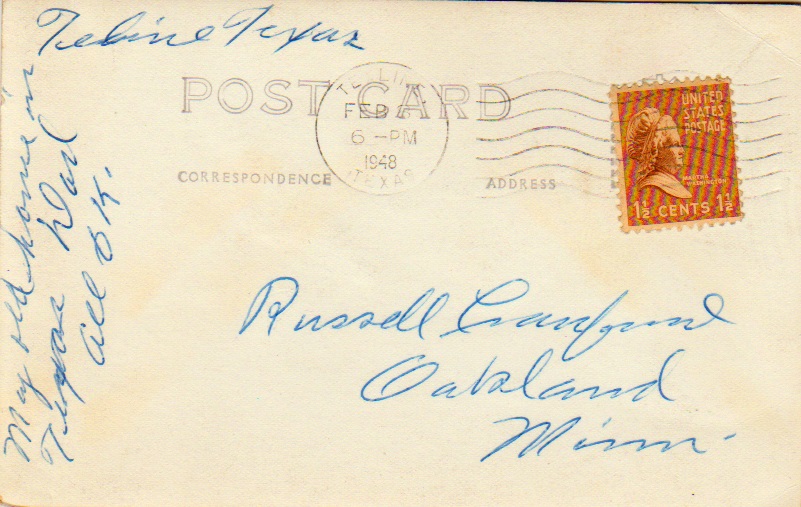 Texas
POST CARD
FEB
6 -PM
1948
TEXAS
UNITED
STATES
POSTAGE
MARTHA
WASHINGTON
1½ CENTS 1½
CORRESPONDENCE
ADDRESS
My old home in
Texas
all O.K.
Russell
Oakland
Minn.